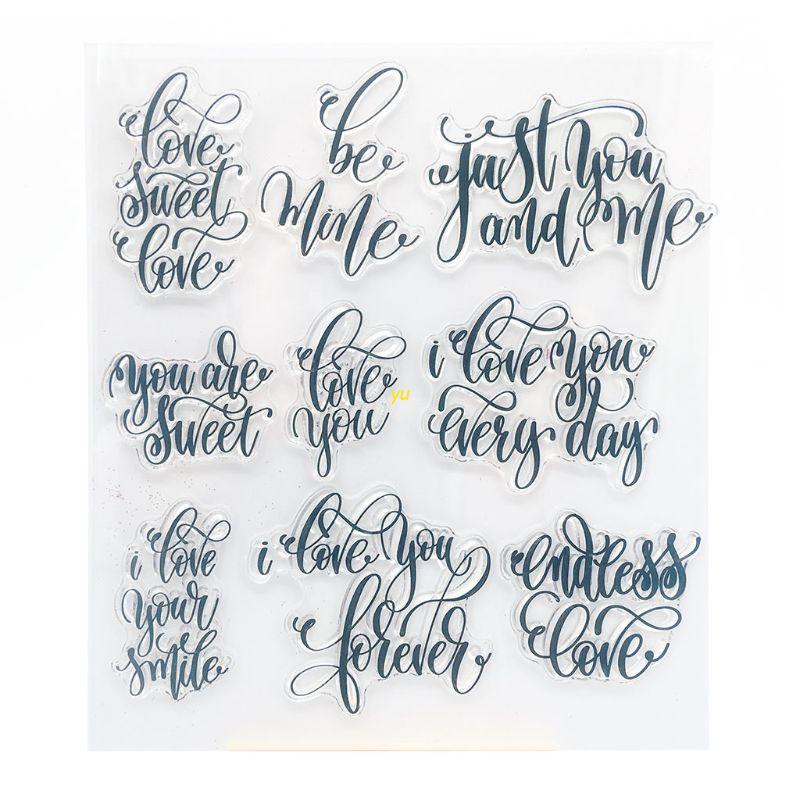 love
sweet
love
be
mine
just you
and me
you are
sweet
love
you
yu
i love you
every day
i love
your
smile
i love you
forever
endless
love